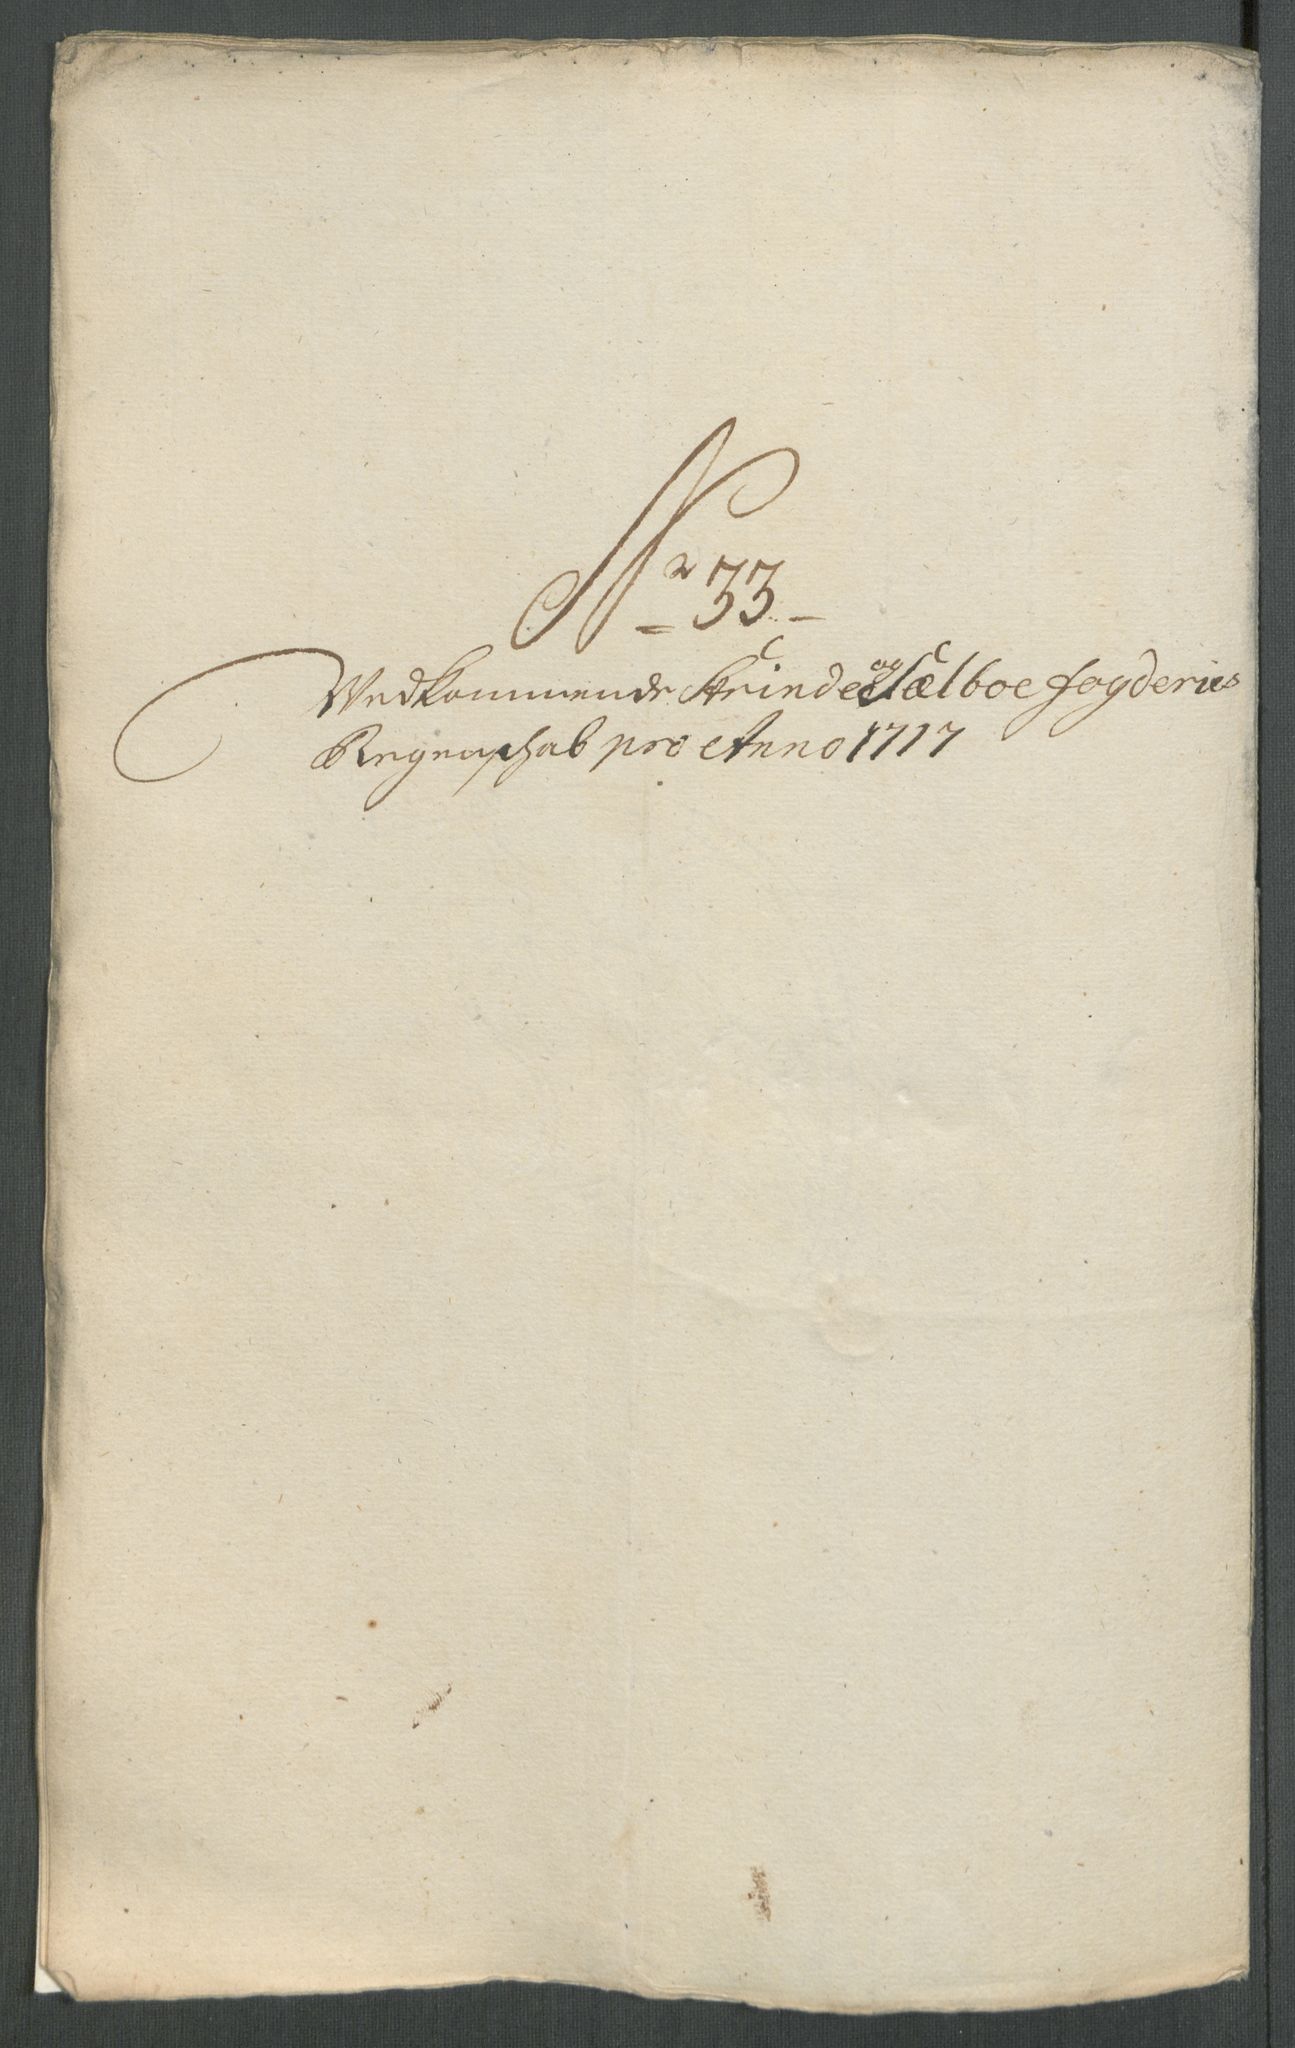 Nr 33
Vedkommende Strinde og Sælboe fogderies
Regenschab pro Anno 1717